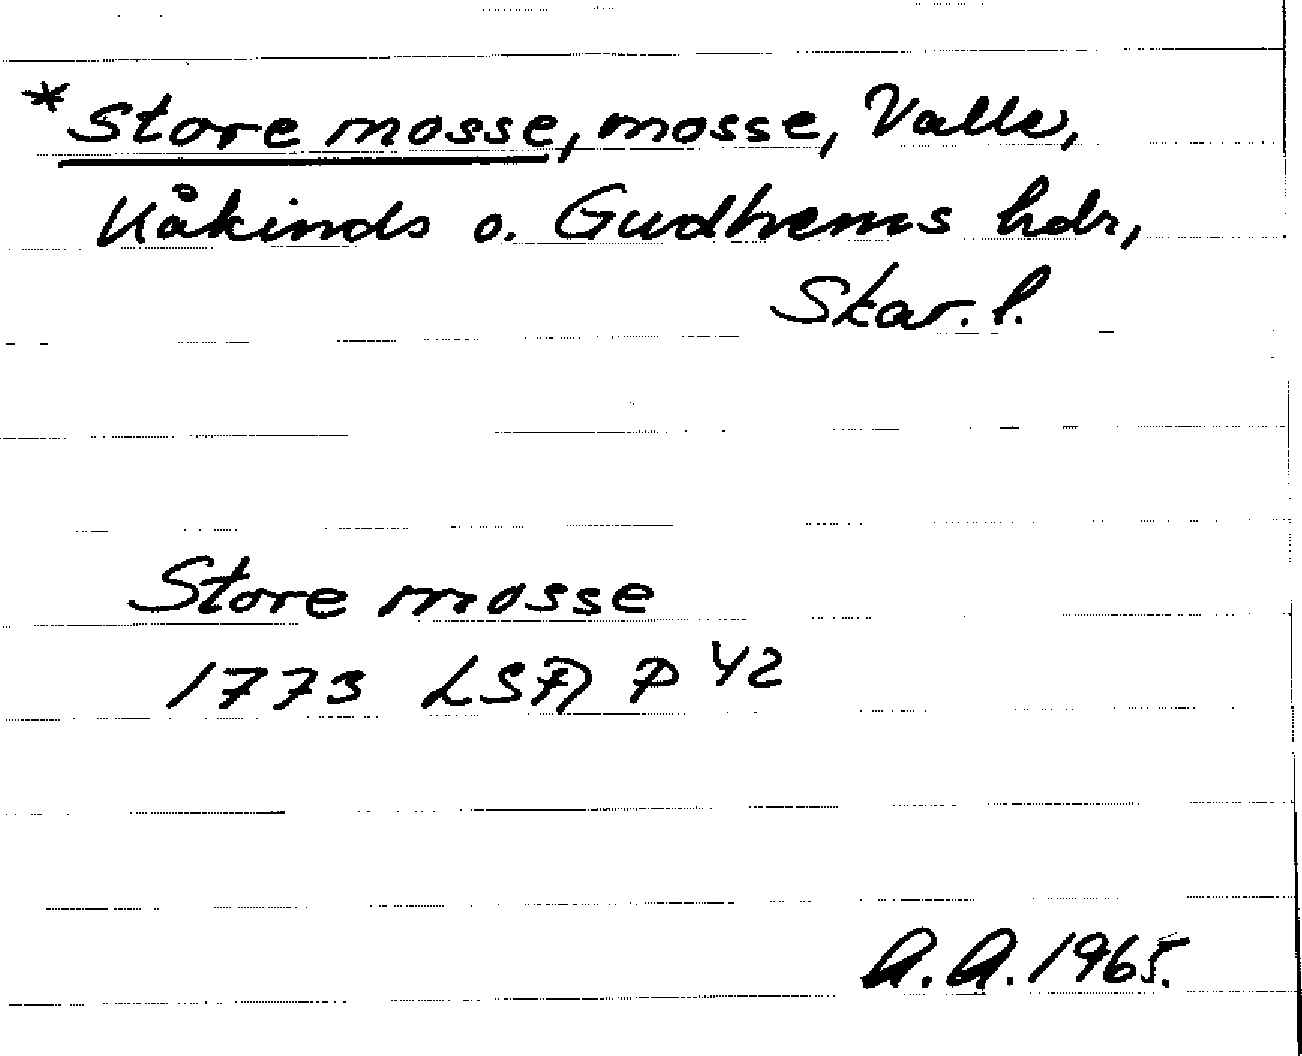 * Store mosse, mosse, Valle,
Kåkinds o. Gudhems hdr,
Skar. l.
Store mosse
1773 LSA P 42
A.A. 1965.